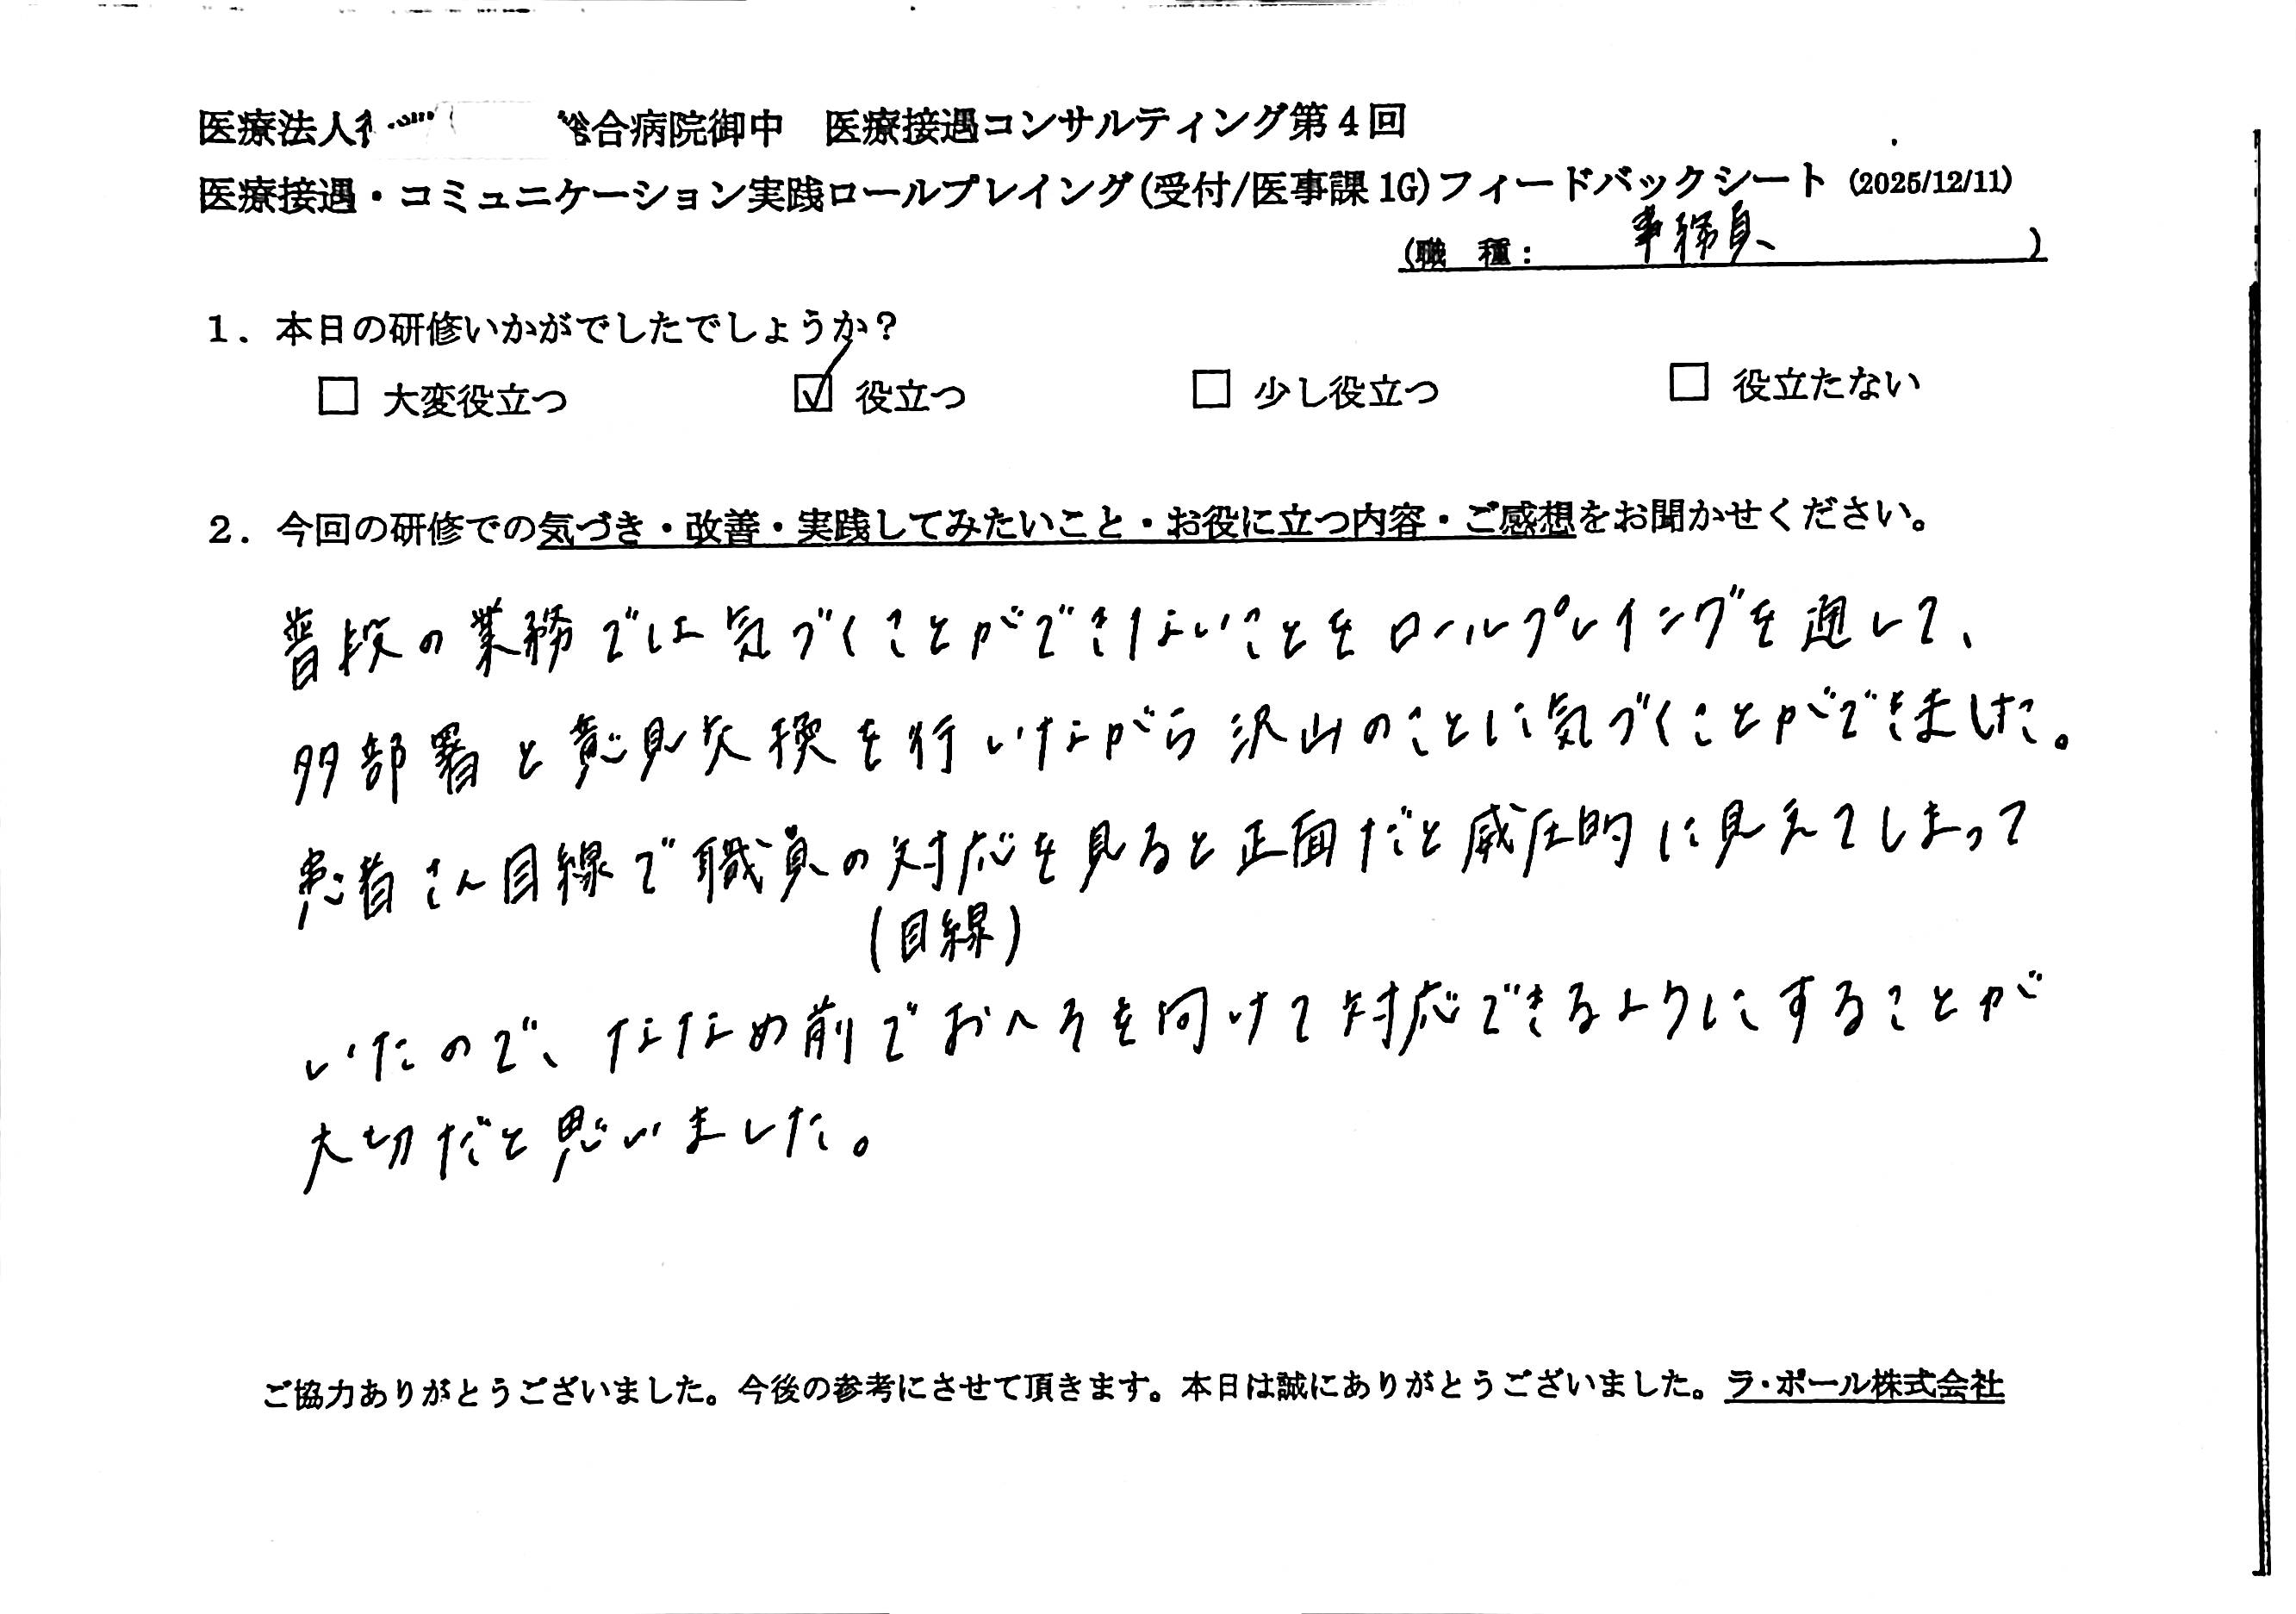 医療法人 総合病院御中 医療接遇コンサルティング第4回
医療接遇・コミュニケーション実践ロールプレイング(受付/医事課1G)フィードバックシート (2025/12/11)
(職 種: 事務員 )
1. 本日の研修いかがでしたでしょうか?
□ 大変役立つ ☑ 役立つ □ 少し役立つ □ 役立たない
2. 今回の研修での気づき・改善・実践してみたいこと・お役に立つ内容・ご感想をお聞かせください。
普段の業務では気づくことができないことをロールプレイングを通して、
多部署と意見交換を行いながら沢山のことに気づくことができました。
患者さん目線で職員の対応を見ると正面だと威圧的に見えてしまって
(目線)
いたので、ななめ前でおへそを向けて対応できるようにすることが
大切だと思いました。
ご協力ありがとうございました。今後の参考にさせて頂きます。本日は誠にありがとうございました。ラ・ポール株式会社